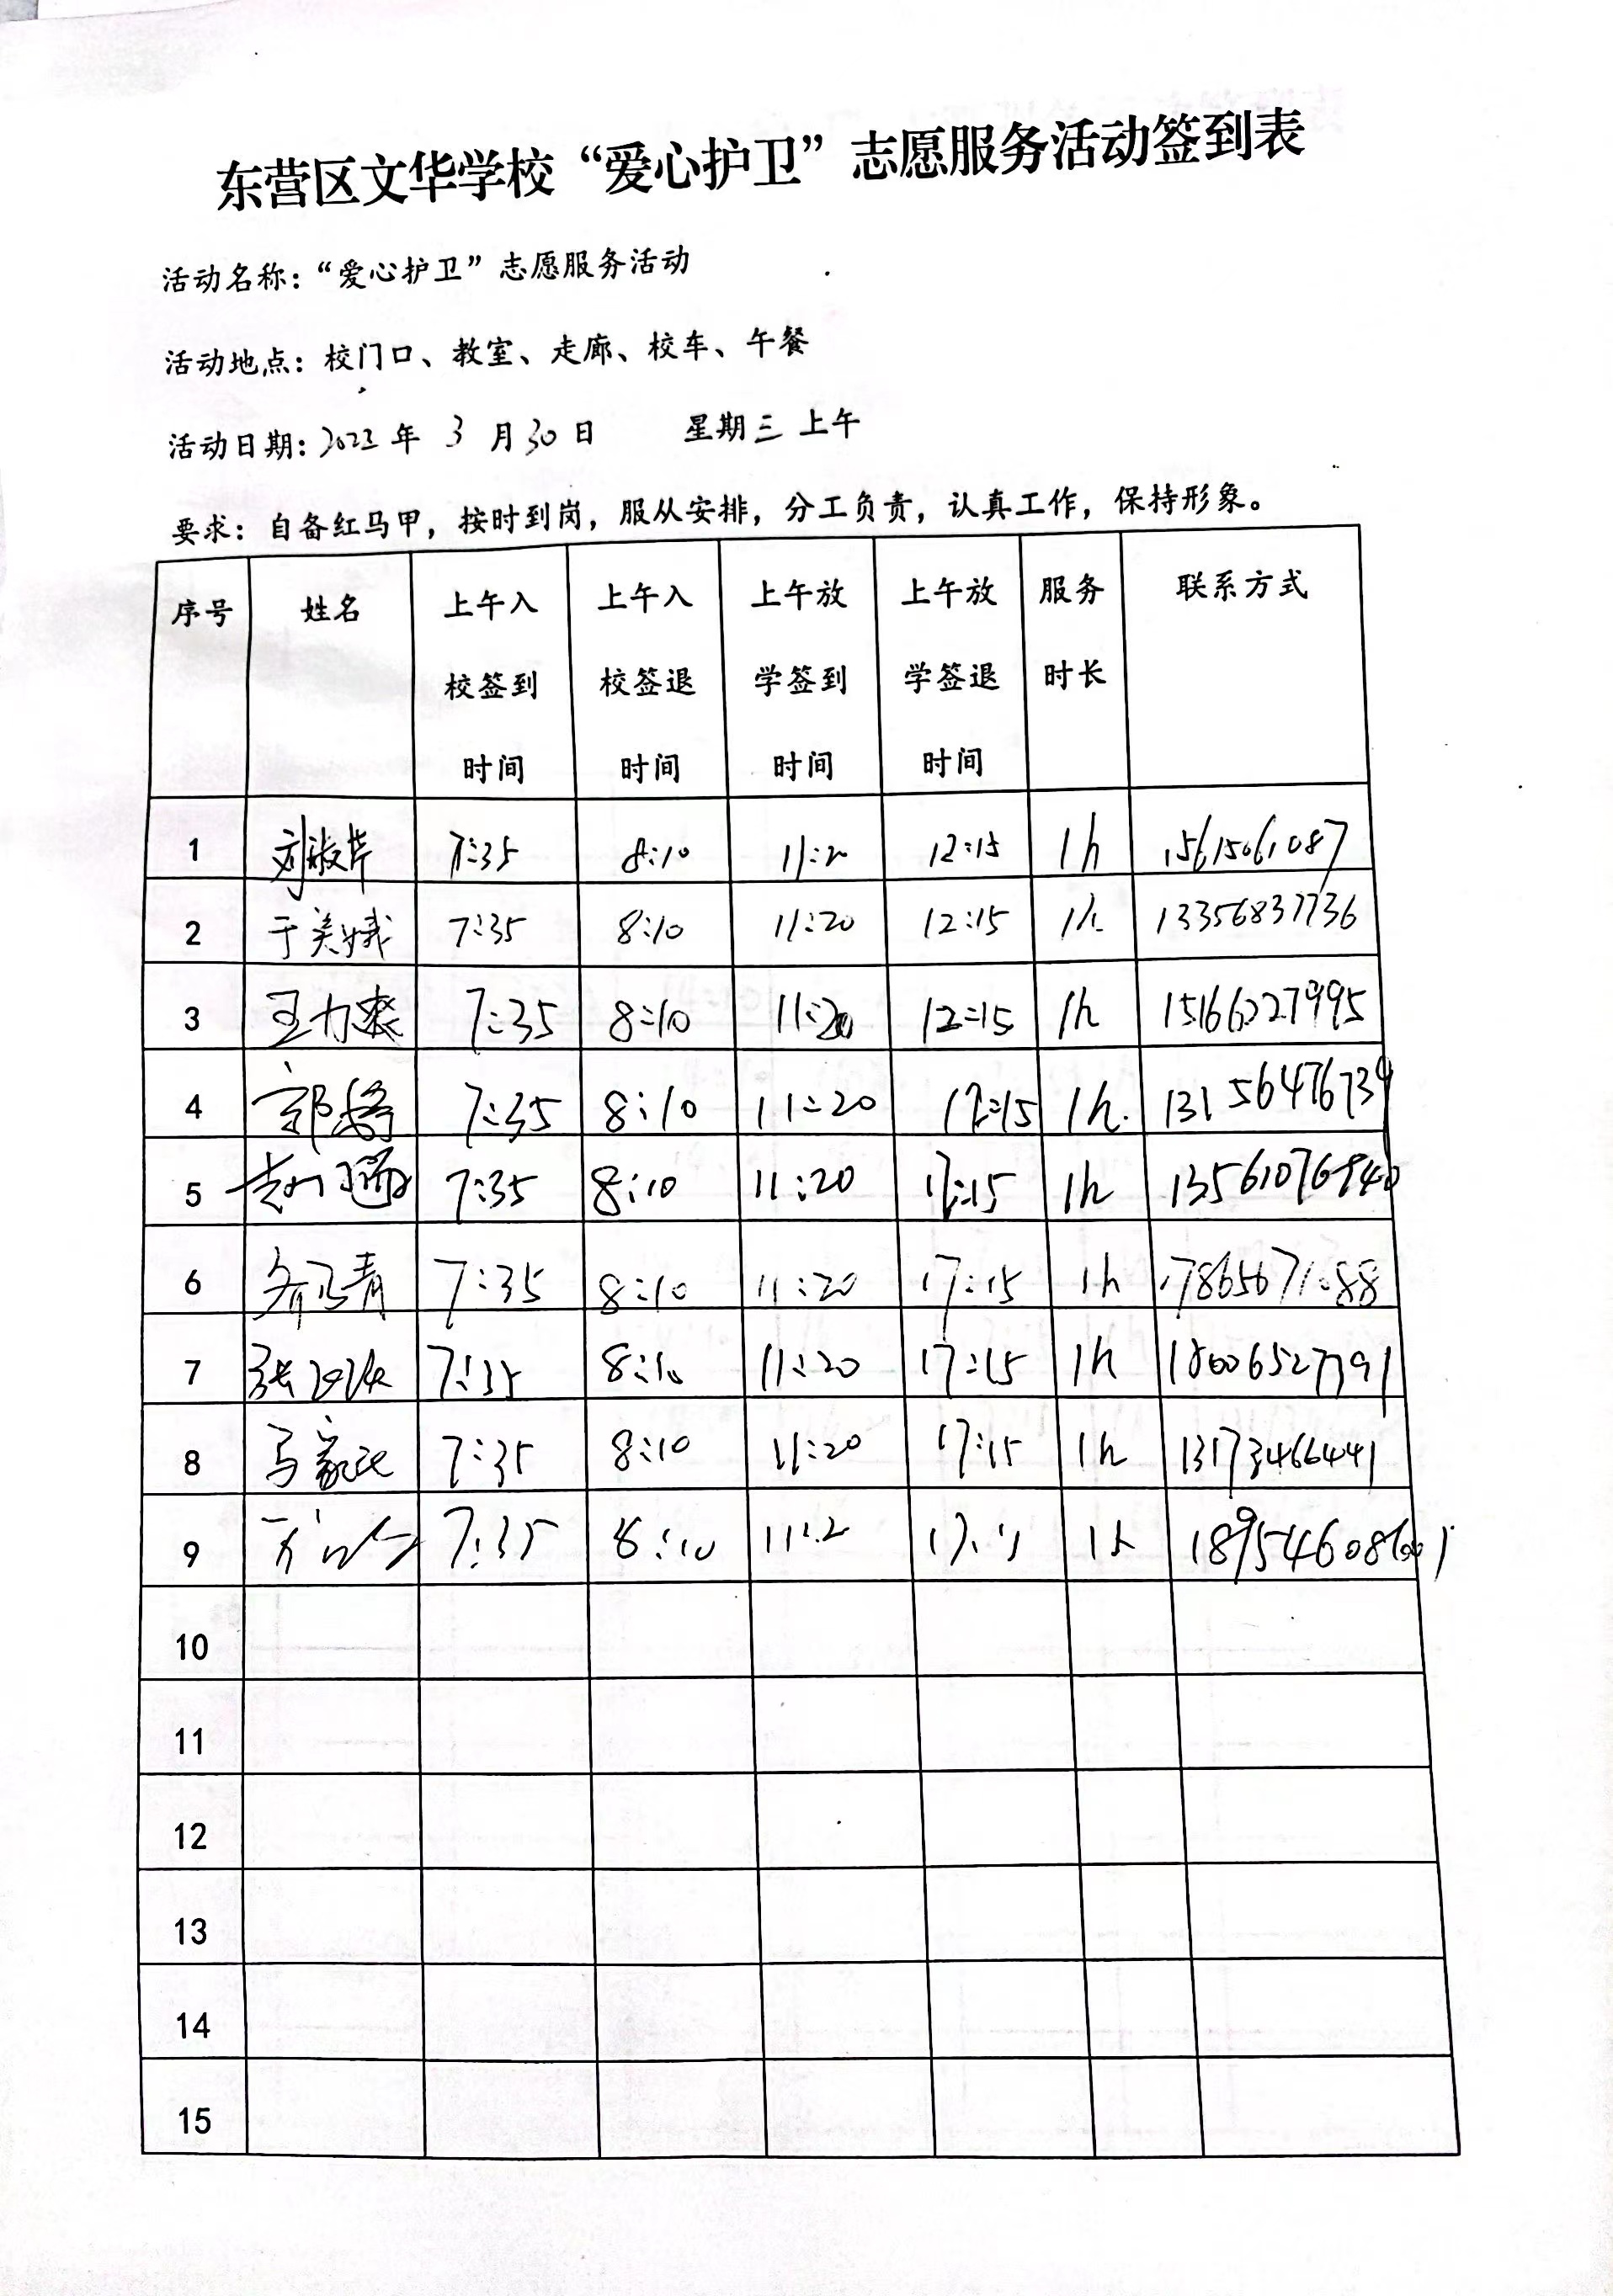 东营区文华学校“爱心护卫”志愿服务活动签到表
活动名称：“爱心护卫”志愿服务活动
活动地点：校门口、教室、走廊、校车、午餐
活动日期：2022年 3 月30日 星期三 上午
要求：自备红马甲，按时到岗，服从安排，分工负责，认真工作，保持形象。
序号 姓名 上午入校签到时间 上午入校签退时间 上午放学签到时间 上午放学签退时间 服务时长 联系方式
1 刘淑芹 7:35 8:10 11:20 12:15 1h 15615061087
2 于美娥 7:35 8:10 11:20 12:15 1h 13356837736
3 7:35 8:10 11:20 12:15 1h 15166227995
4 7:35 8:10 11:20 12:15 1h. 13156476734
5 7:35 8:10 11:20 12:15 1h
6 7:35 8:10 11:20 17:15 1h 17865671088
7 7:35 8:10 11:20 17:15 1h
8 7:35 8:10 11:20 17:15 1h 13173466441
9 7:35 8:10 1h
10
11
12
13
14
15